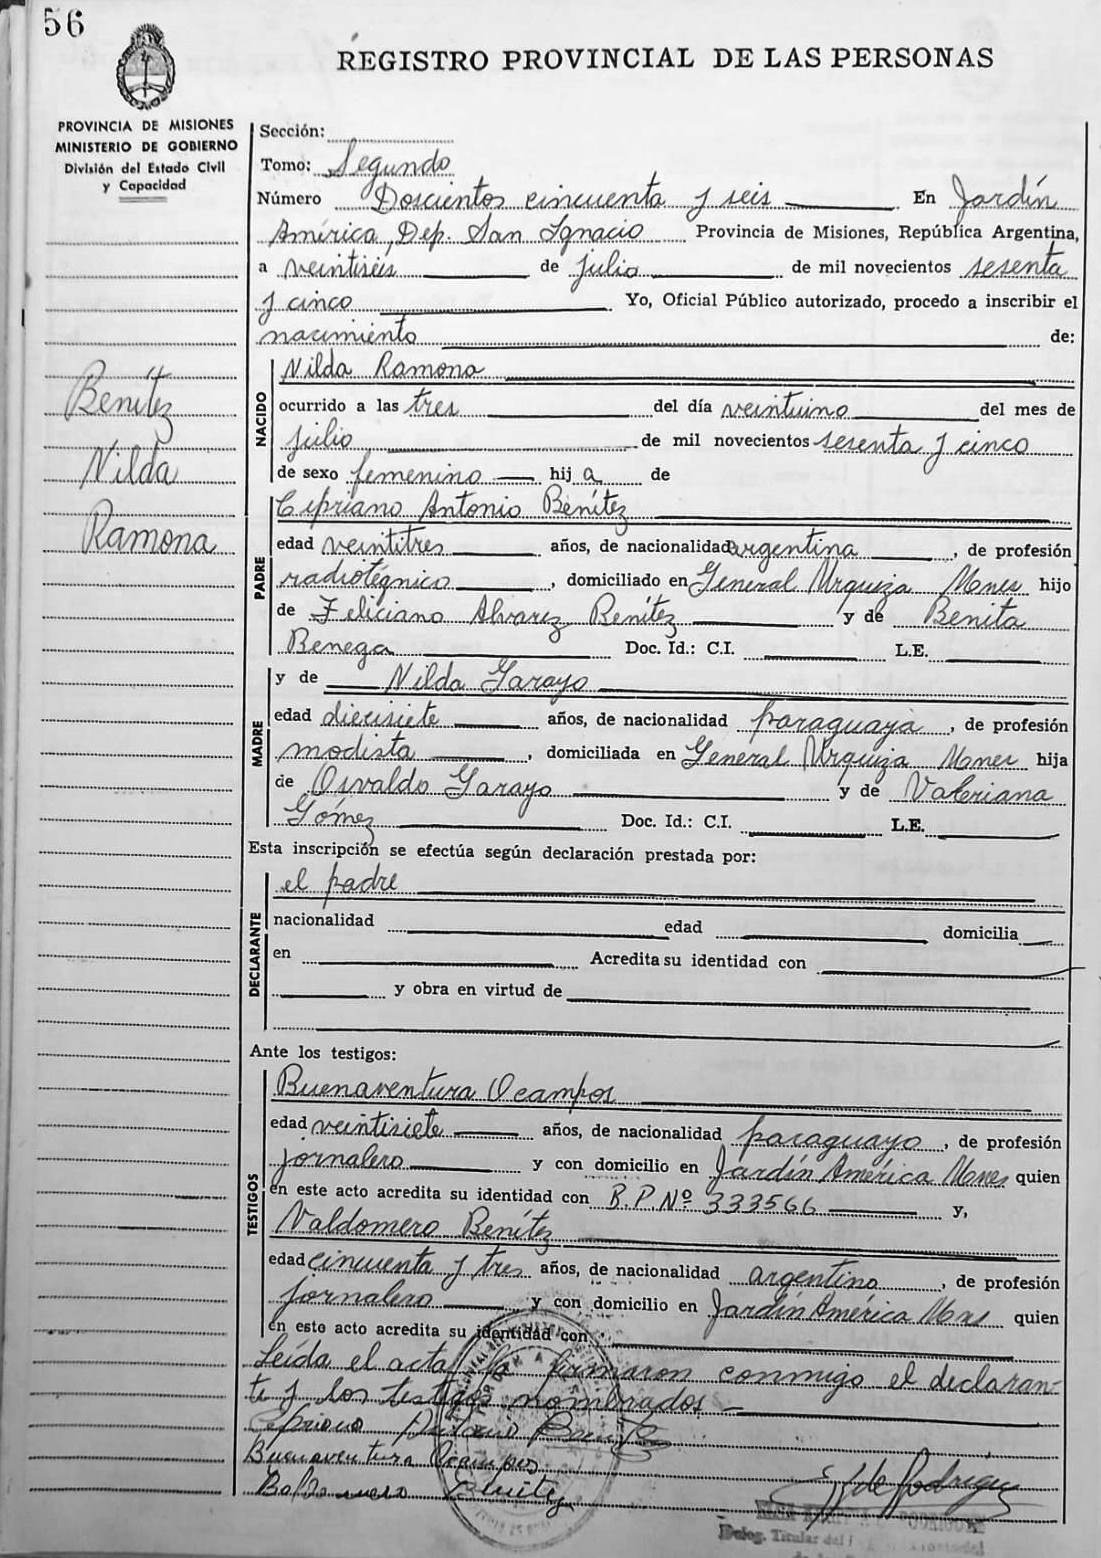 56
REGISTRO PROVINCIAL DE LAS PERSONAS
PROVINCIA DE MISIONES
MINISTERIO DE GOBIERNO
División del Estado Civil
y Capacidad
Benítez
Nilda
Ramona
Sección:
Tomo: Segundo
Número Doscientos cincuenta y seis En Jardín
América, Dep. San Ignacio Provincia de Misiones, República Argentina,
a veintiséis de julio de mil novecientos sesenta
y cinco Yo, Oficial Público autorizado, procedo a inscribir el
nacimiento de:
NACIDO
Nilda Ramona
ocurrido a las tres del día veintuino del mes de
julio de mil novecientos sesenta y cinco
de sexo femenino hij a de
PADRE
Cipriano Antonio Benítez
edad veintitres años, de nacionalidad argentina, de profesión
radiotégnico, domiciliado en General Urquiza Mnes hijo
de Feliciano Alvarez Benítez y de Benita
Benega Doc. Id.: C.I. L.E.
MADRE
y de Nilda Garayo
edad diecisiete años, de nacionalidad paraguaya, de profesión
modista, domiciliada en General Urquiza Mnes hija
de Osvaldo Garayo y de Valeriana
Gómez Doc. Id.: C.I. L.E.
Esta inscripción se efectúa según declaración prestada por:
DECLARANTE
el padre
nacionalidad edad domicilia
en Acredita su identidad con
y obra en virtud de
Ante los testigos:
TESTIGOS
Buenaventura Ocampos
edad veintisiete años, de nacionalidad paraguayo, de profesión
jornalero y con domicilio en Jardín América Mnes quien
en este acto acredita su identidad con B.P.Nº 333566 y,
Valdomero Benítez
edad cincuenta y tres años, de nacionalidad argentino, de profesión
jornalero y con domicilio en Jardín América Mnes quien
en este acto acredita su identidad con
Leída el acta la firmaron conmigo el declaran-
te y los testigos nombrados
Cipriano Antonio Benítez
Buenaventura Ocampos
Baldomero Benitez
de Rodriguez
RODRIGUEZ
Deleg. Titular del